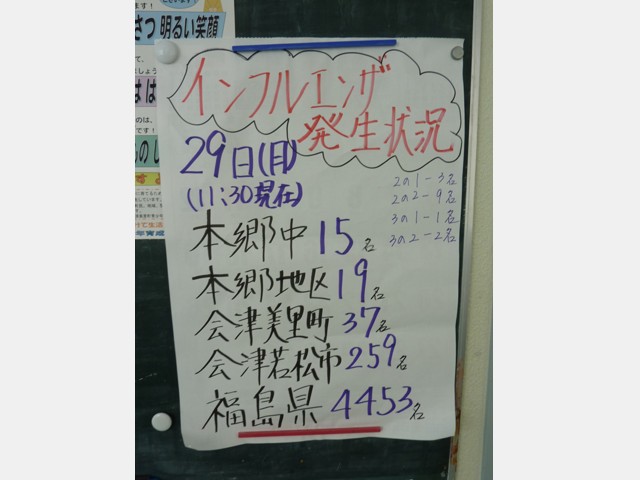 さつ 明るい笑顔
インフルエンザ
発生状況
29日(月)
(11:30現在)
2の1-3名
2の2-9名
3の1-1名
3の2-2名
本郷中 15名
本郷地区 19名
会津美里町 37名
会津若松市 259名
福島県 4453名